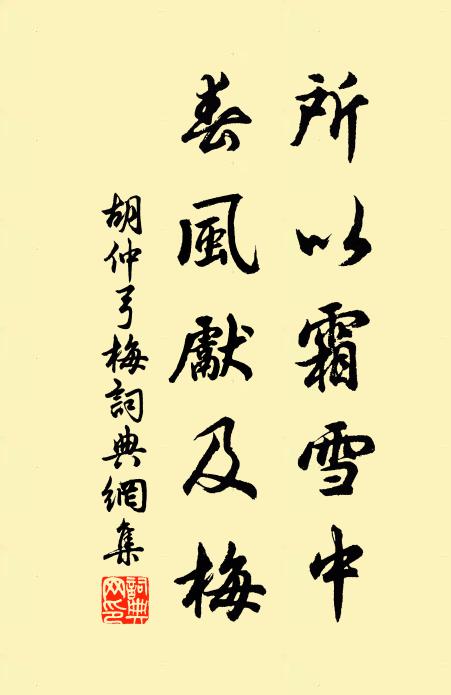 所以霜雪中
春風獻及梅
胡仲弓梅詞典網集
詞典
网印